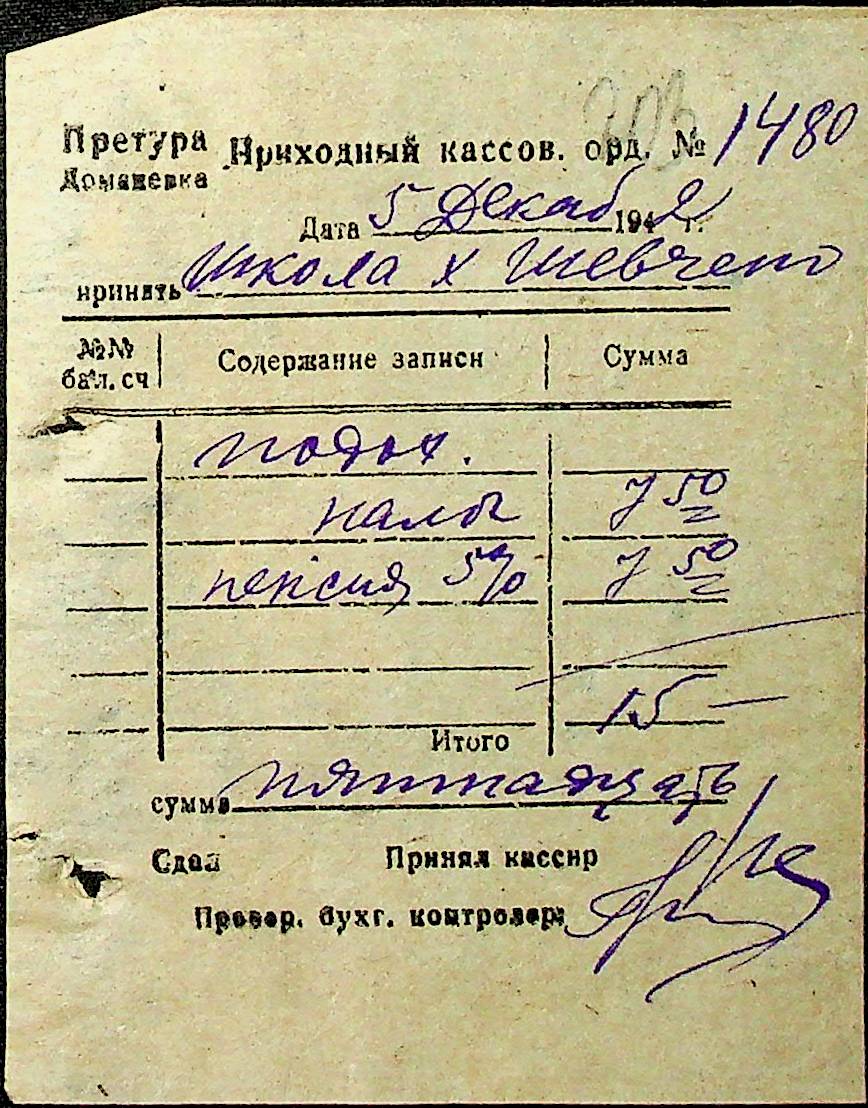 203
Претура Приходный кассов. орд. № 1480
Доманевка
Дата 5 Декаб 1942 г.
принять Школа х Шевчено
№№ бал. сч Содержание записи Сумма
подох.
налог 7 50
пенсия 5% 7 50
15 —
Итого
сумма пятнадцать
Сдал Принял кассир
Провер. бухг. контролер: